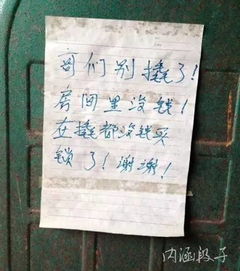 哥们别撬了!
房间里没钱!
在撬都没钱买
锁了!谢谢!
内涵段子